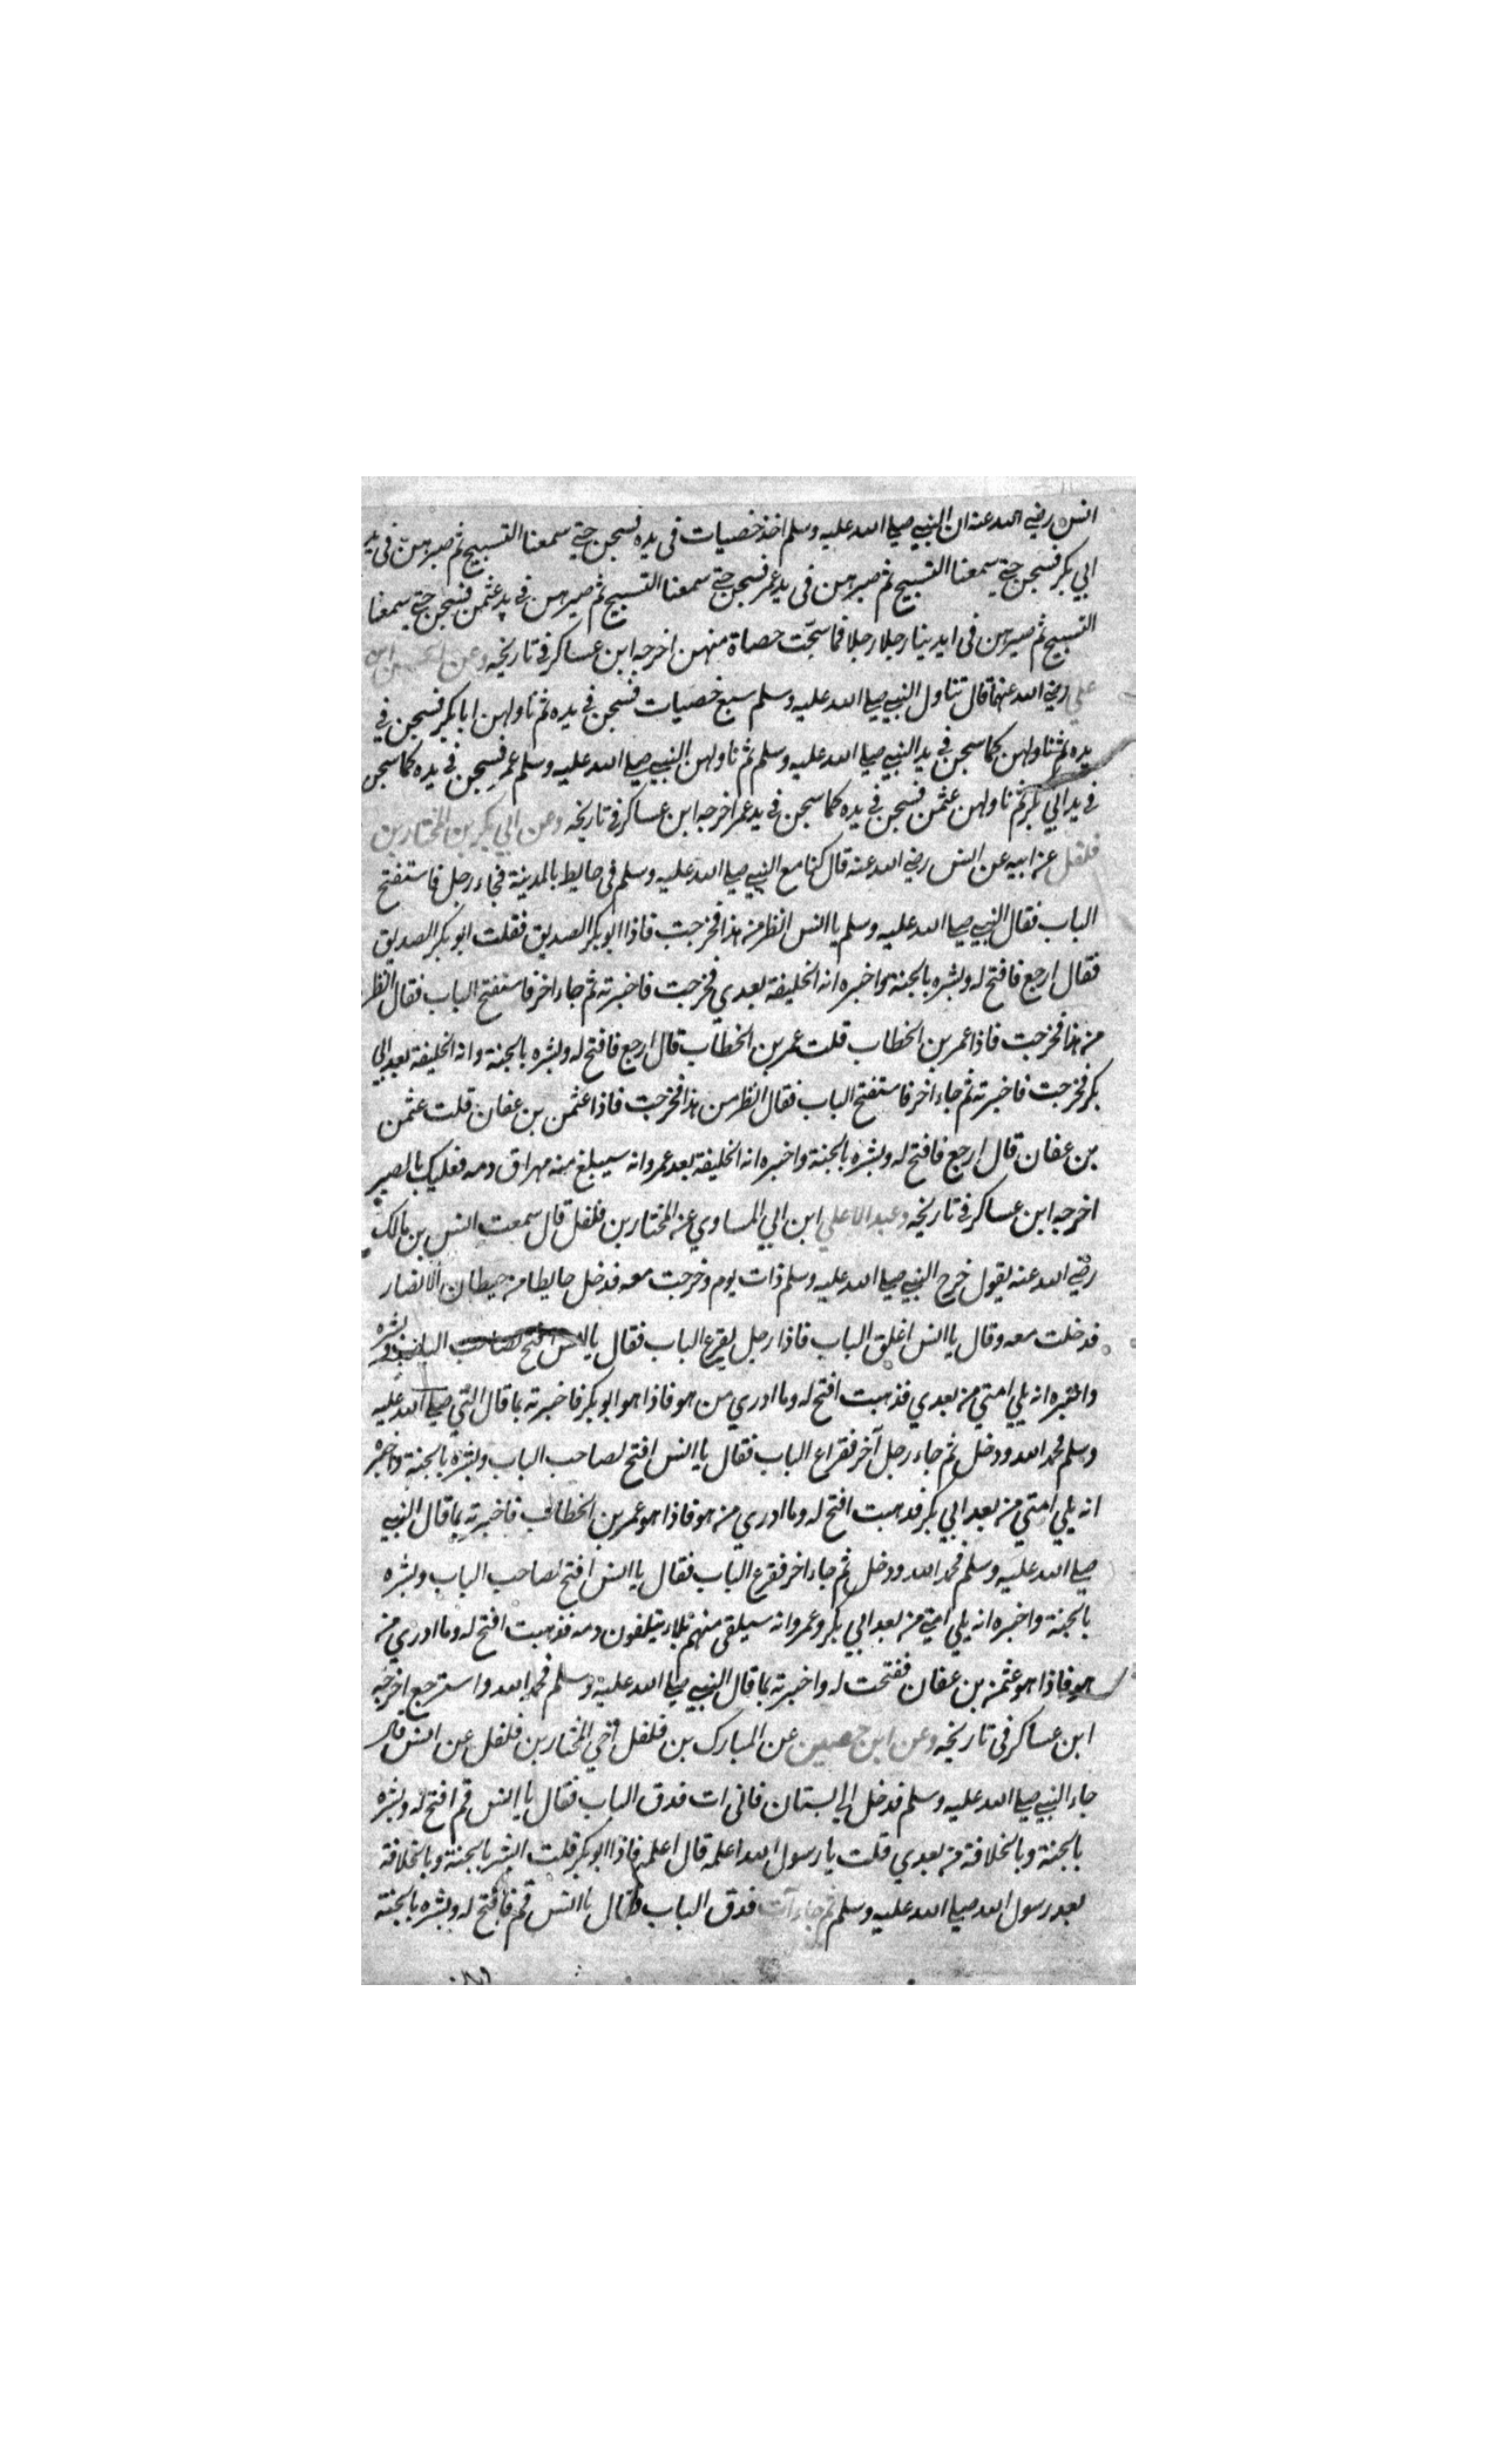 انس رضي الله عنه ان النبي صلي الله عليه وسلم اخذ خصيات في يده فسبحن حتي سمعنا التسبيح ثم صيرهن في يد
ابي بكر فسبحن حتي سمعنا التسبيح ثم صيرهن في يد عمر فسبحن حتي سمعنا التسبيح ثم صيرهن في يد عثمن فسبحن حتي سمعنا
التسبيح ثم صيرهن في ايدينا رجلا رجلا فما سبحت حصاة منهن اخرجه ابن عساكر في تاريخه وعن الحسين ابن
علي رضي الله عنهما قال تناول النبي صلي الله عليه وسلم سبع خصيات فسبحن في يده ثم ناولهن ابا بكر فسبحن في
يده ثم ناولهن كما سبحن في يد النبي صلي الله عليه وسلم ثم ناولهن النبي صلي الله عليه وسلم عمر فسبحن في يده كما سبحن
في يد ابي بكر ثم ناولهن عثمن فسبحن في يده كما سبحن في يد عمر اخرجه ابن عساكر في تاريخه وعن ابي بكر بن المختار بن
فلفل عن ابيه عن انس رضي الله عنه قال كنا مع النبي صلي الله عليه وسلم في حايط بالمدينة فجاء رجل فاستفتح
الباب فقال النبي صلي الله عليه وسلم يا انس انظر من هذا فخرجت فاذا ابو بكر الصديق فقلت ابو بكر الصديق
فقال ارجع فافتح له وبشره بالجنة واخبره انه الخليفة بعدي فخرجت فاخبرته ثم جاء اخر فاستفتح الباب فقال انظر
من هذا فخرجت فاذا عمر بن الخطاب قلت عمر بن الخطاب قال ارجع فافتح له وبشره بالجنة وانه الخليفة بعد ابي
بكر فخرجت فاخبرته ثم جاء اخر فاستفتح الباب فقال انظر من هذا فخرجت فاذا عثمن بن عفان قلت عثمن
بن عفان قال ارجع فافتح له وبشره بالجنة واخبره انه الخليفة بعد عمر وانه سيبلغ منه مهراق دمه فعليك بالصبر
اخرجه ابن عساكر في تاريخه وعبد الاعلي ابن ابي المساوي عن المختار بن فلفل قال سمعت انس بن مالك
رضي الله عنه يقول خرج النبي صلي الله عليه وسلم ذات يوم وخرجت معه فدخل حايطا من حيطان الانصار
فدخلت معه وقال يا انس اغلق الباب فاذا رجل يقرع الباب فقال يا انس افتح لصاحب الباب وبشره
واخبره انه يلي امتي من بعدي فذهبت افتح له وما ادري من هو فاذا هو ابو بكر فاخبرته بما قال النبي صلي الله عليه
وسلم فحمد الله ودخل ثم جاء رجل آخر فقراع الباب فقال يا انس افتح لصاحب الباب وبشره بالجنة واخبره
انه يلي امتي من بعد ابي بكر فدهبت افتح له وما ادري من هو فاذا هو عمر بن الخطاب فاخبرته بما قال النبي
صلي الله عليه وسلم فحمد الله ودخل ثم جاء اخر فقرع الباب فقال يا انس افتح لصاحب الباب وبشره
بالجنة واخبره انه يلي امتي من بعد ابي بكر وعمر وانه سيلقي منهم بلاء دمه فذهبت افتح له وما ادري من
هو فاذا هو عثمن بن عفان ففتحت له واخبرته بما قال النبي صلي الله عليه وسلم فحمد الله واسترجع اخرجه
ابن عساكر في تاريخه وعن ابن حصين عن المبارك بن فلفل اخي المختار بن فلفل عن انس قال
جاء النبي صلي الله عليه وسلم فدخل الي بستان فاتي ات فدق الباب فقال يا انس قم افتح له وبشره
بالجنة وبالخلافة من بعدي قلت يا رسول الله اعلمه قال اعلمه فاذا ابو بكر قلت ابشر بالجنة وبالخلافة
بعد رسول الله صلي الله عليه وسلم ثم جاء آت فدق الباب فقال يا انس قم فافتح له وبشره بالجنة